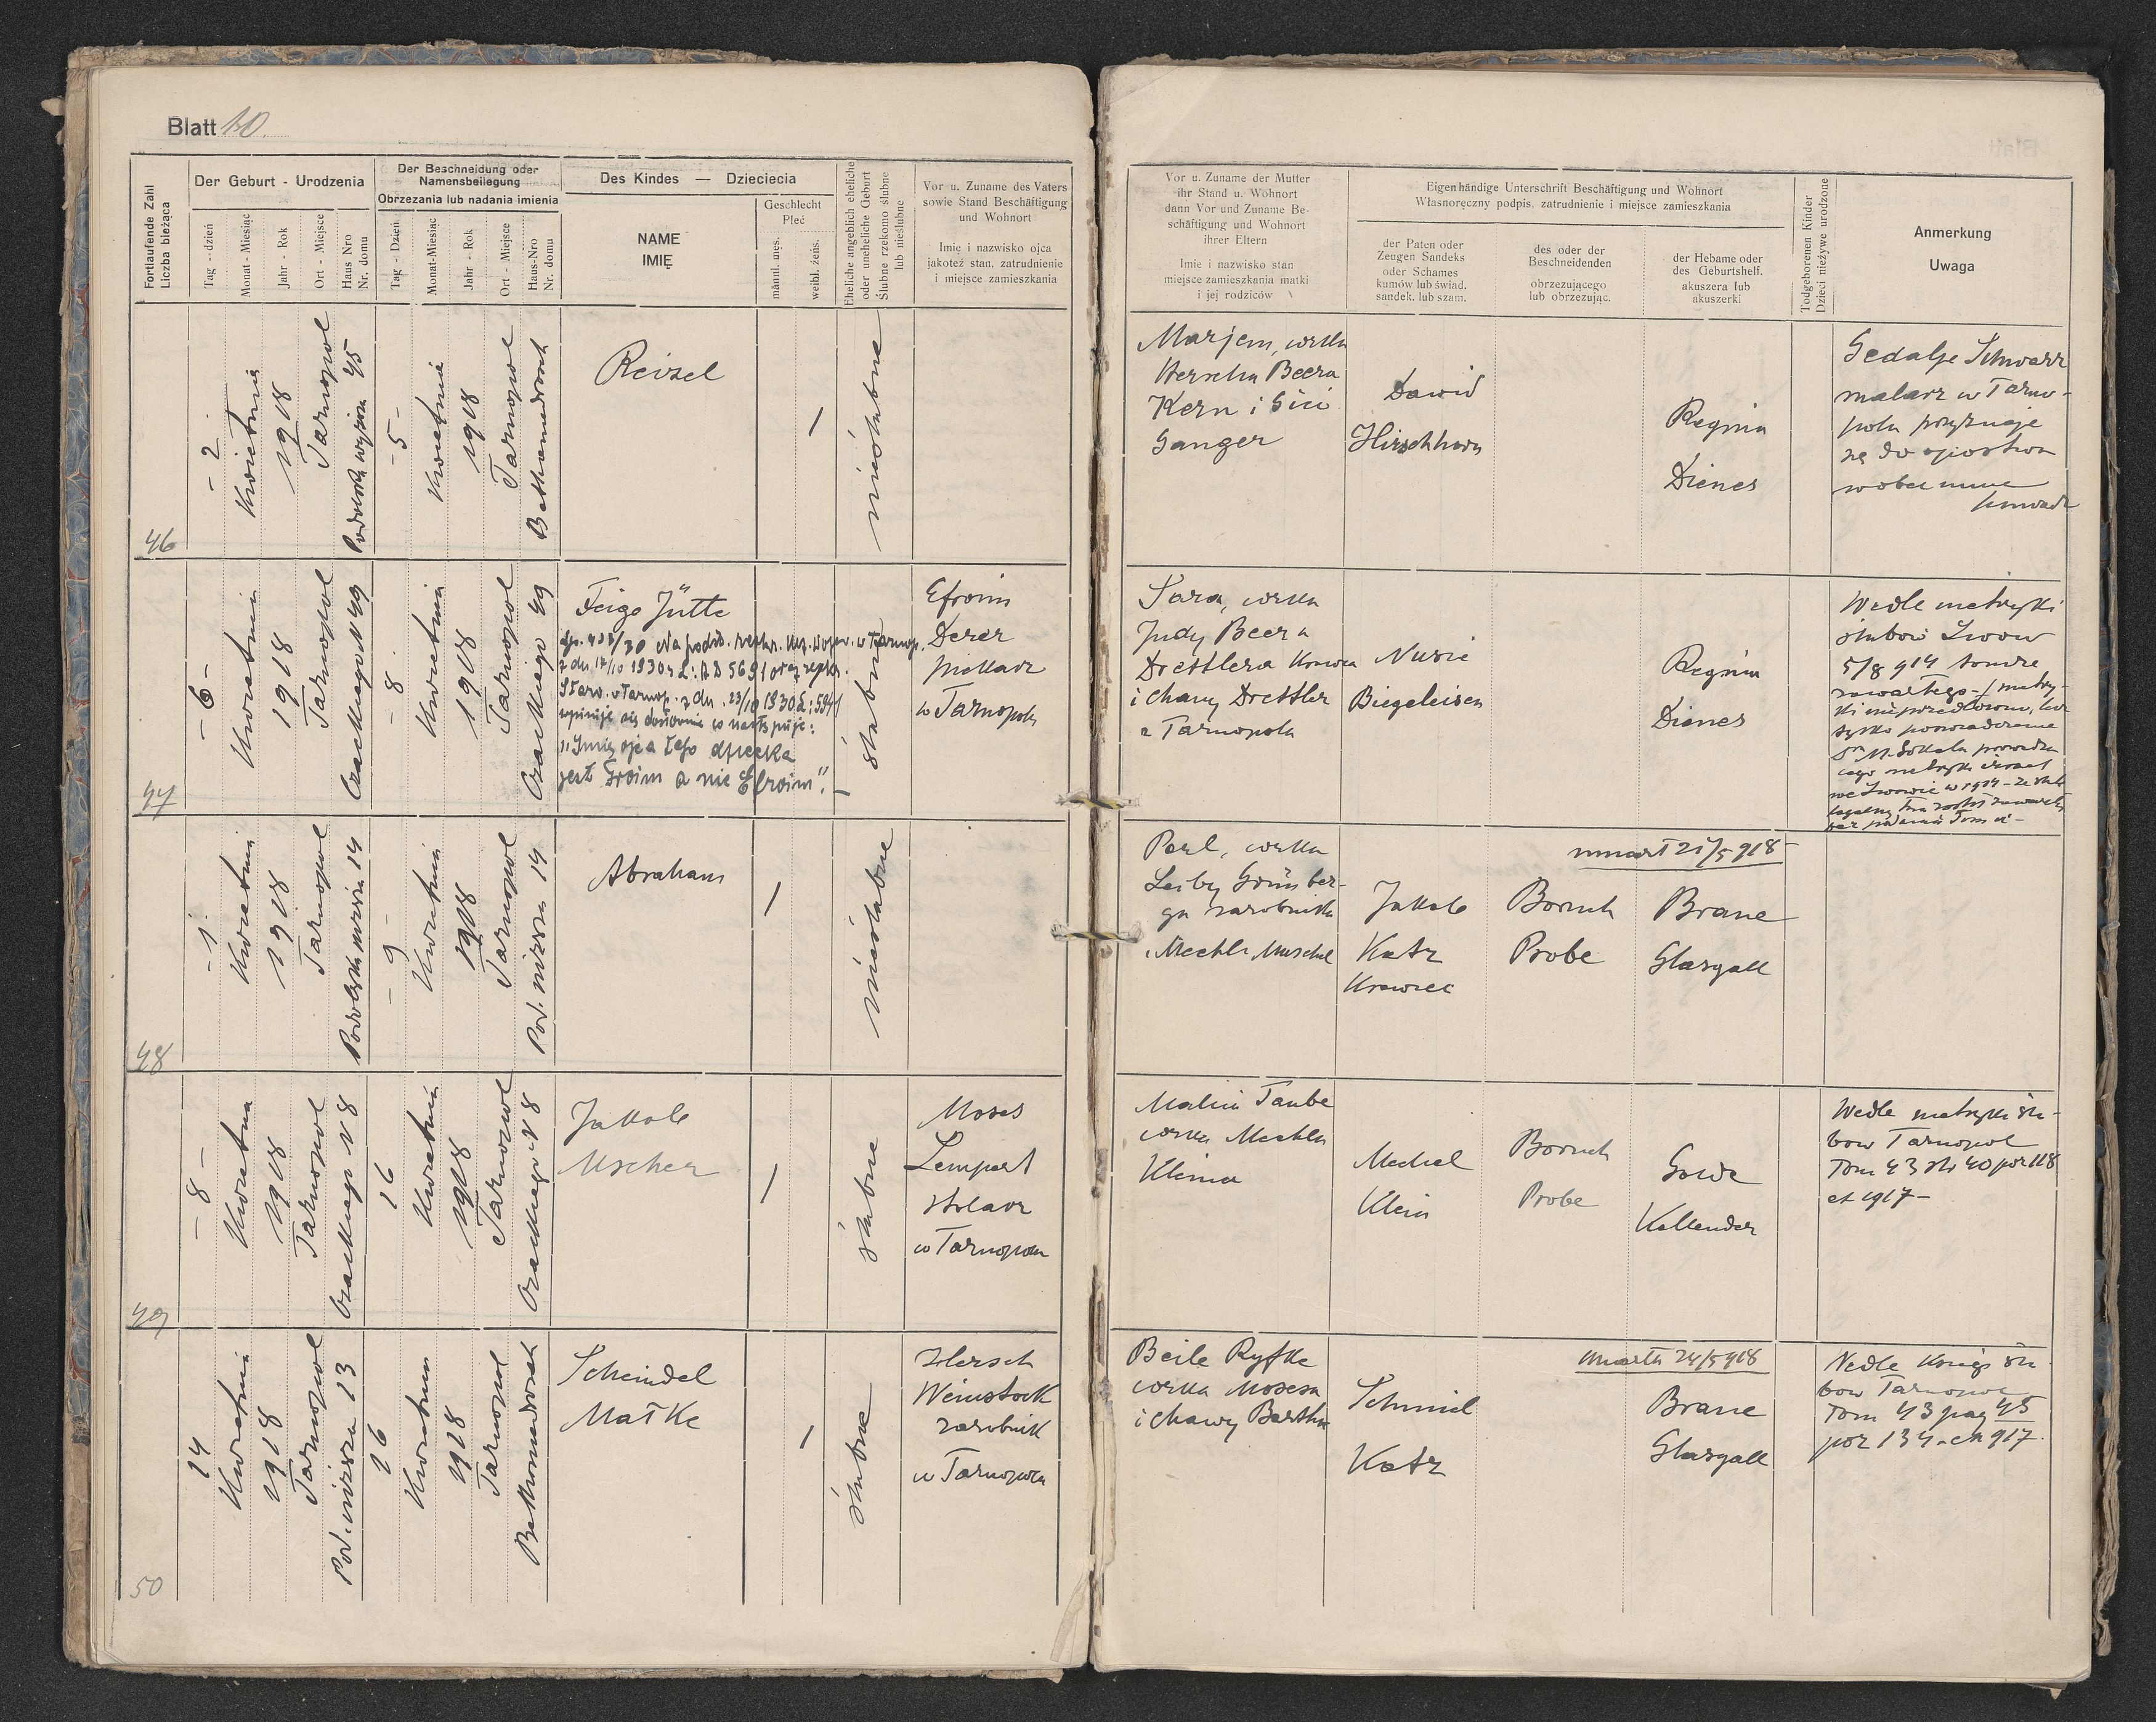 Blatt 10.
Fortlaufende Zahl
Liczba bieżąca
Der Geburt - Urodzenia
Tag - dzień
Monat - Miesiąc
Jahr - Rok
Ort - Miejsce
Haus Nro
Nr. domu
Der Beschneidung oder
Namensbeilegung
Obrzezania lub nadania imienia
Tag - Dzień
Monat-Miesiąc
Jahr - Rok
Ort - Miejsce
Haus-Nro
Nr. domu
Des Kindes — Dzieciecia
NAME
IMIĘ
Geschlecht
Płeć
männl. męs.
weibl. żeńs.
Eheliche angeblich eheliche
oder uneheliche Geburt
Ślubne rzekomo ślubne
lub nieślubne
Vor u. Zuname des Vaters
sowie Stand Beschäftigung
und Wohnort
Imię i nazwisko ojca
jakoteż stan, zatrudnienie
i miejsce zamieszkania
Vor u. Zuname der Mutter
ihr Stand u. Wohnort
dann Vor und Zuname Be-
schäftigung und Wohnort
ihrer Eltern
Imie i nazwisko stan
miejsce zamieszkania matki
i jej rodziców
Eigenhändige Unterschrift Beschäftigung und Wohnort
Własnoręczny podpis, zatrudnienie i miejsce zamieszkania
der Paten oder
Zeugen Sandeks
oder Schames
kumów lub świad.
sandek. lub szam.
des oder der
Beschneidenden
obrzezującego
lub obrzezując.
der Hebame oder
des Geburtshelf.
akuszera lub
akuszerki
Todgeborenen Kinder
Dzieci nieżywe urodzone
Anmerkung
Uwaga
46
- 2 -
Kwietnia
1918
Tarnopol
Podolska wyższa 45
- 5 -
Kwietnia
1918
Tarnopol
Reisel
nieślubne
Marjem, córka
Herscha Beera
Kern i Gici
Ganger
Dawid
Hirschhorn
Regina
Dienes
Gedalje Schwarz
malarz w Tarno-
polu przyznaje
się do ojcostwa
wobec mnie
47
- 6 -
Kwietnia
1918
Tarnopol
Czackiego N 49
- 8
Kwietnia
1918
Tarnopol
Czackiego 49
Feige Jütte
Na podst. reskr. Urz. Wojew. w Tarnop.
z dn. 17/10 1930 L: AD 5691 oraz reskr.
Staro. w Tarnop. z dn. 23/10 1930 L:
wpisuje się dosłownie co następuje:
"Imię ojca tego dziecka
jest Froim a nie Efroim".
ślubne
Efroim
Derer
piekarz
w Tarnopolu
Sara, córka
Judy Beera
Drettlera krawca
i Chany Drettler
z Tarnopola
Nusie
Biegeleisen
Regina
Dienes
Wedle metryki
ślubów Lwów
5/8 914
zawartego - / metry-
ki nie przedłożono, lecz
tylko poświadczenie
we Lwowie w 1914 - że ślub
48
- 1 -
Kwietnia
1918
Tarnopol
Podolska niższa 14
- 9 -
Kwietnia
1918
Tarnopol
Pod. niższa 14
Abraham
nieślubne
Perl, córka
Leiby Grünber-
ga zarobnika
i Mechli Muschel
Jakob
Katz
Krawiec
Boruch
Probe
umarł 21/5 918
Brane
Glasgall
49
- 8 -
Kwietnia
1918
Tarnopol
Czackiego N 8
16
Kwietnia
1918
Tarnopol
Czackiego N 8
Jakob
Uscher
ślubne
Moses
Lempert
stolarz
w Tarnopolu
Malcia Taube
córka Mechla
Kleina
Mechel
Klein
Boruch
Probe
Kallender
Wedle metryki ślu-
bów Tarnopol
Tom 43 str 40 poz 118
ex 1917 -
50
14
Kwietnia
1918
Tarnopol
Pod. niższa 13
26
Kwietnia
1918
Tarnopol
Scheindel
Matke
ślubne
Hersch
Weinstock
zarobnik
w Tarnopolu
Beile Ryfke
córka Mosesa
i Chawy
Schmiel
Katz
umarła 24/5 918
Brane
Glasgall
Wedle księgi ślu-
bów Tarnopol
Tom 43 pag 45
poz 134 - ex 917.